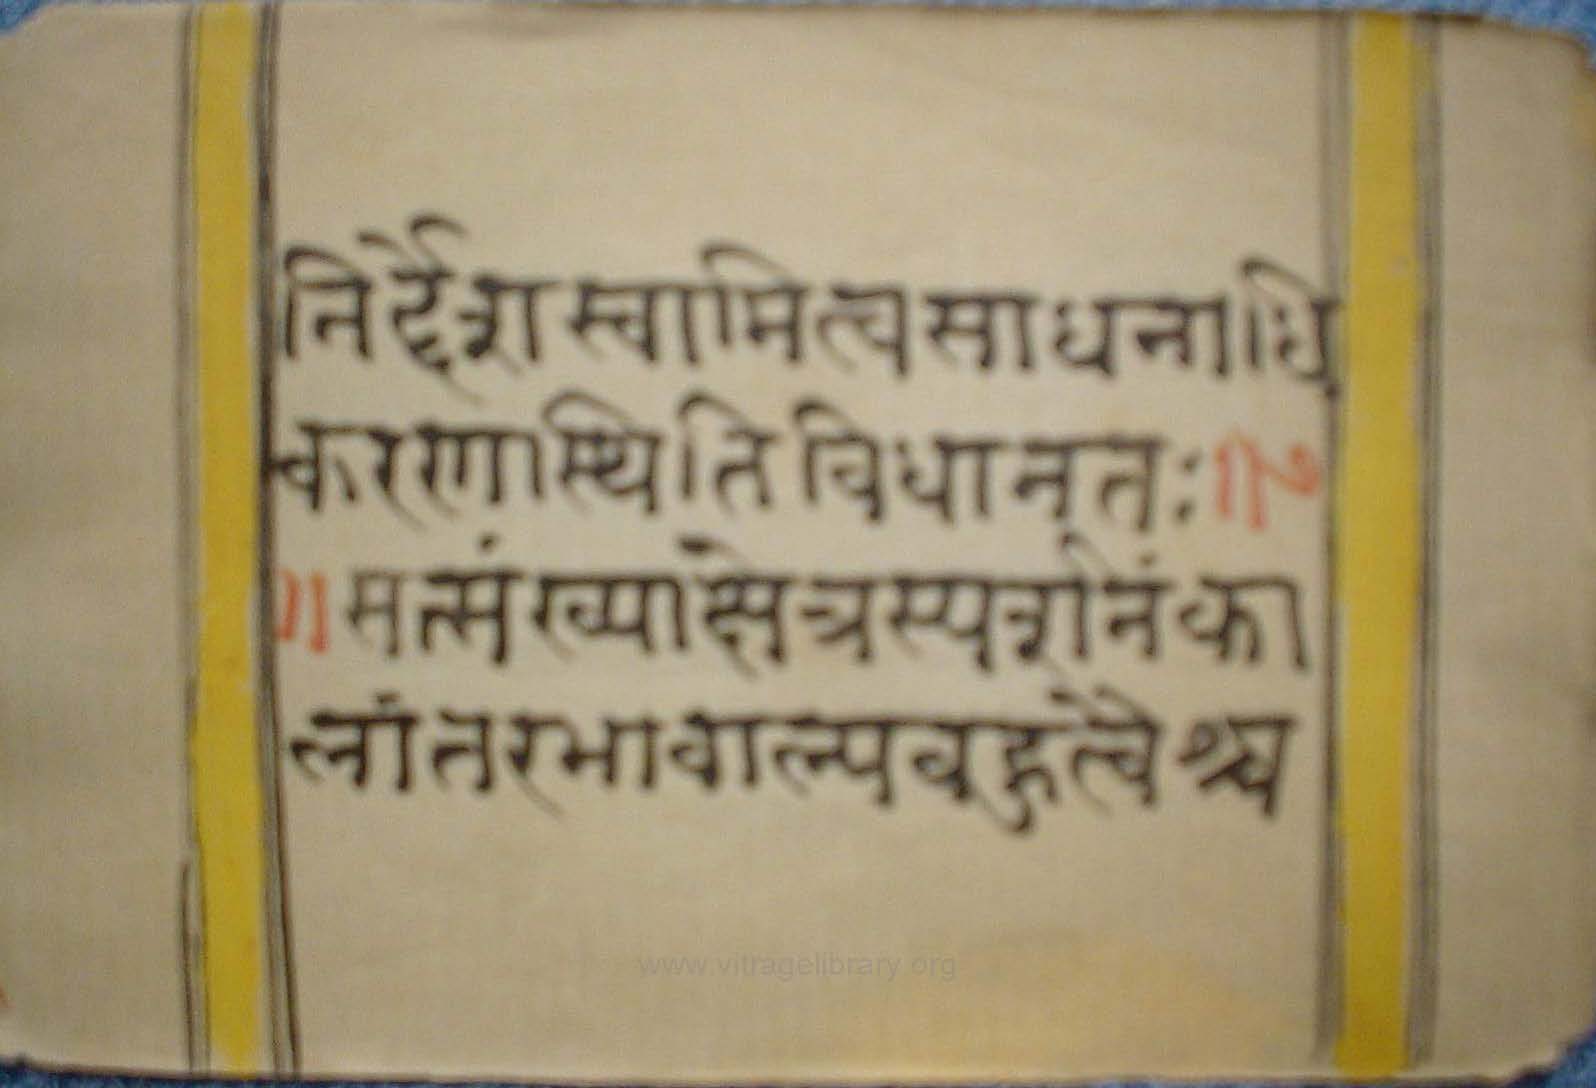 निर्देशस्वामित्वसाधनाधि
करणास्थितिविधानतः॥७
॥सत्संख्याक्षेत्रस्पर्शनंका
लांतरभावाल्पबहुत्वैश्च
www.vitragelibrary.org